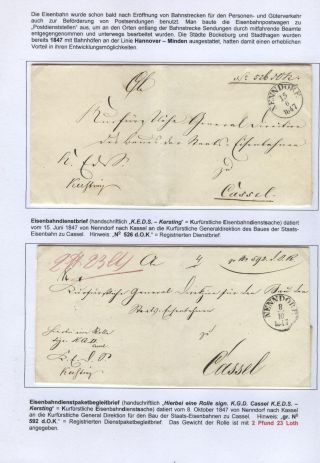 Die Eisenbahn wurde schon bald nach Eröffnung von Bahnstrecken für den Personen- und Güterverkehr
auch zur Beförderung von Postsendungen benutzt. Man baute die Eisenbahnpostwagen zu
„Postdienststellen" aus, um an den Orten entlang der Bahnstrecke Sendungen durch mitfahrende Beamte
entgegennehmen und unterwegs bearbeitet wurden. Die Städte Bückeburg und Stadthagen wurden
bereits 1847 mit Bahnhöfen an der Linie Hannover – Minden ausgestattet, hatten damit einen erheblichen
Vorteil in ihren Entwicklungsmöglichkeiten.
No 526 d.O.K.
NENNDORF
15
6
1847
Kurfürstliche General
des Baues der Staats Eisenbahnen
zu
K. E. d. S.
Kersting
Cassel
Eisenbahndienstbrief (handschriftlich „K.E.D.S. – Kersting" = Kurfürstliche Eisenbahndienstsache) datiert
vom 15. Juni 1847 von Nenndorf nach Kassel an die Kurfürstliche Generaldirektion des Baues der Staats-
Eisenbahn zu Cassel. Hinweis: „N° 526 d.O.K." = Registrierten Dienstbrief.
592 d.O.K.
NENNDORF
8
10
1847
Kurfürstliche General Direktion für den Bau der
Staats Eisenbahnen
zu
Hierbei eine Rolle
sign. K.G.D.
Cassel
K. E. d. S.
Kersting
Cassel
Eisenbahndienstpaketbegleitbrief (handschriftlich „Hierbei eine Rolle sign. K.G.D. Cassel K.E.D.S. –
Kersting" = Kurfürstliche Eisenbahndienstsache) datiert vom 8. Oktober 1847 von Nenndorf nach Kassel
an die Kurfürstliche General Direktion für den Bau der Staats-Eisenbahnen zu Cassel Hinweis „gr. N°
592 d.O.K." = Registrierten Dienstbrief. Das Gewicht der Rolle ist mit 2 Pfund 23 Loth
angegeben.